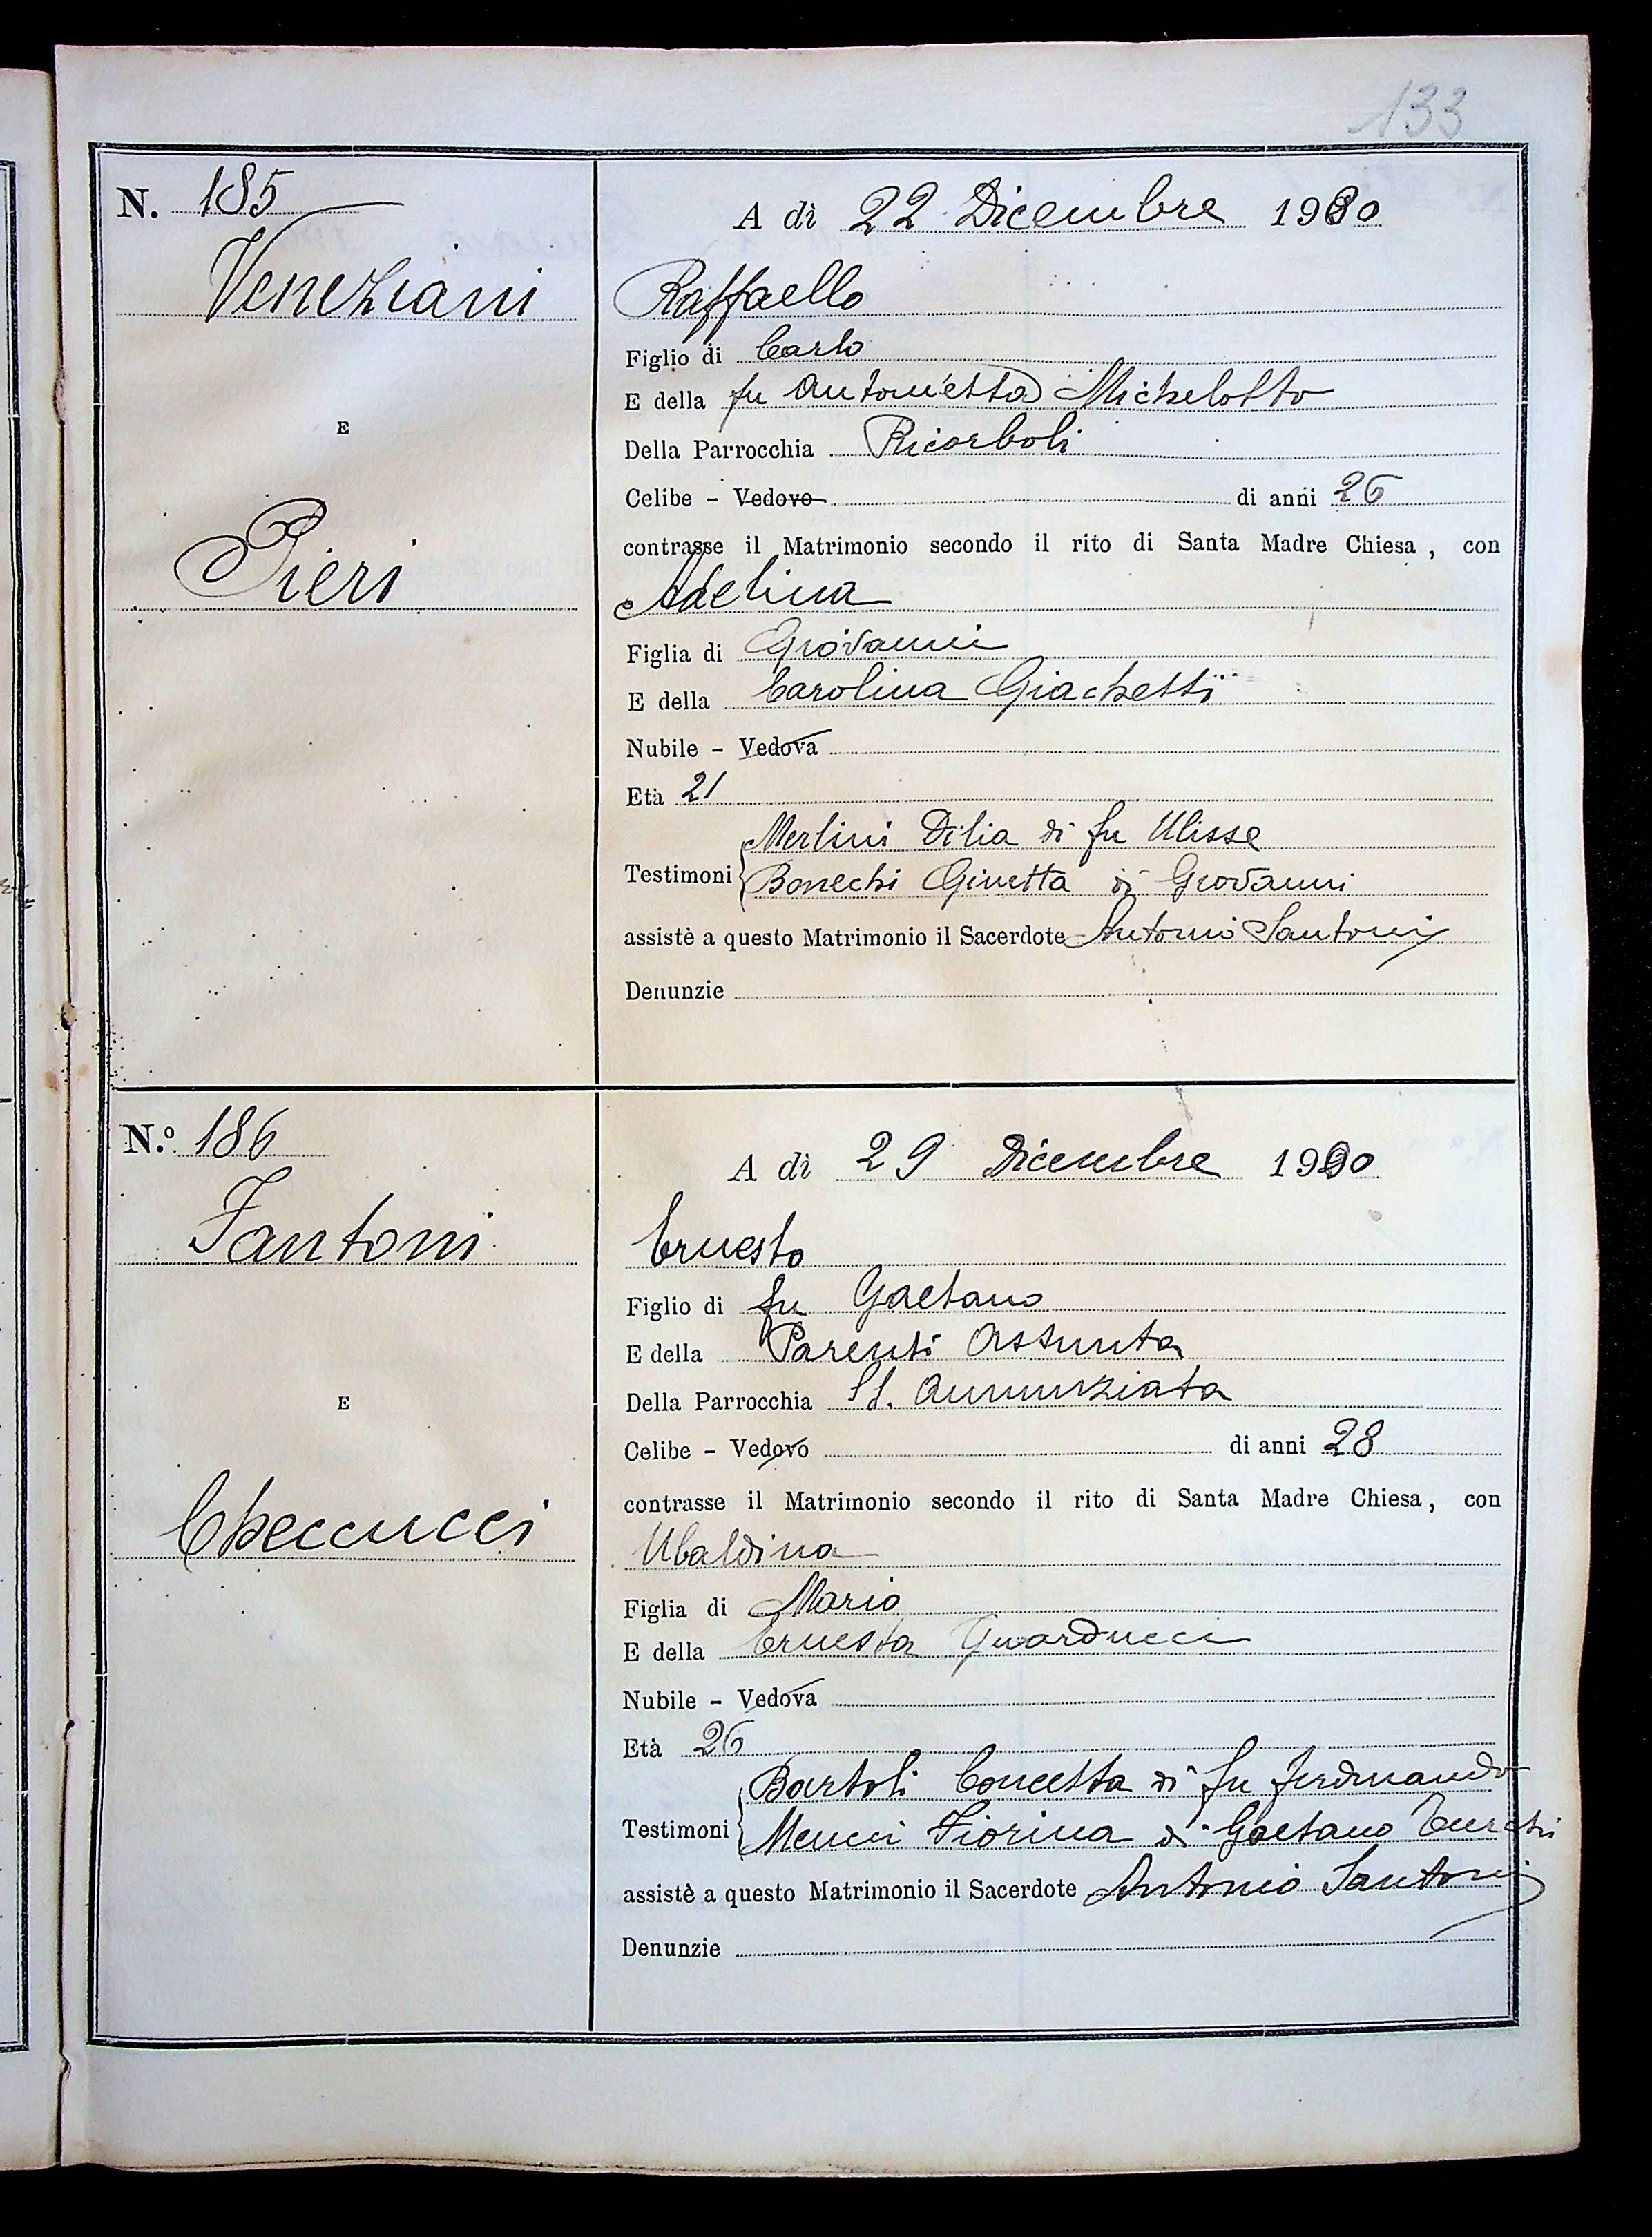 133
N. 185
Veneziani
E
Pieri
A dì 22 Dicembre 19
Raffaello
Figlio di Carlo
E della fu Antonietta Michelotto
Della Parrocchia Ricorboli
Celibe - Vedovo di anni 26
contrasse il Matrimonio secondo il rito di Santa Madre Chiesa, con
Adelina
Figlia di Giovanni
E della Carolina Giachetti
Nubile - Vedova
Età 21
Merlini Dilia di fu Ulisse
Testimoni
Bonechi Ginetta di Giovanni
assistè a questo Matrimonio il Sacerdote Antonio Santoni
Denunzie
N.º 186
Fantoni
E
Checcucci
A dì 29 Dicembre 19
Ernesto
Figlio di fu Gaetano
E della Parenti Assunta
Della Parrocchia SS. Annunziata
Celibe - Vedovo di anni 28
contrasse il Matrimonio secondo il rito di Santa Madre Chiesa, con
Ubaldina
Figlia di Mario
E della Ernesta Guarducci
Nubile - Vedova
Età 26
Bartoli Concetta di fu Ferdinando
Testimoni
Meucci Fiorina di Gaetano
assistè a questo Matrimonio il Sacerdote Antonio Santoni
Denunzie